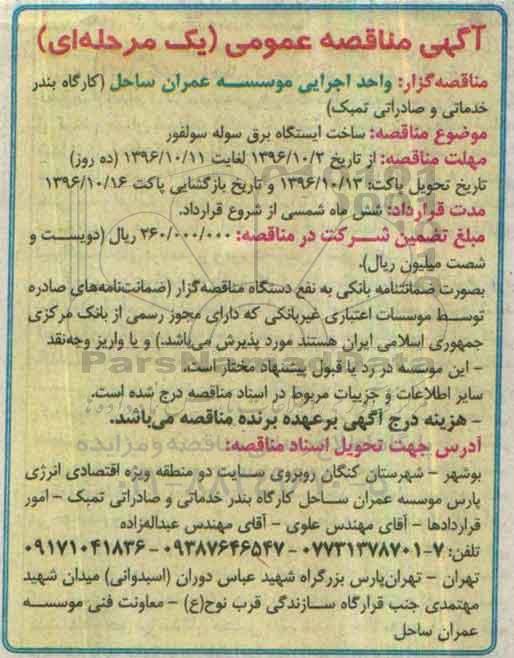 آگهی مناقصه عمومی (یک مرحله‌ای)
مناقصه‌گزار: واحد اجرایی موسسه عمران ساحل (کارگاه بندر
خدماتی و صادراتی تمبک)
موضوع مناقصه: ساخت ایستگاه برق سوله سولفور
مهلت مناقصه: از تاریخ ۱۳۹۶/۱۰/۲ لغایت ۱۳۹۶/۱۰/۱۱ (ده روز)
تاریخ تحویل پاکت: ۱۳۹۶/۱۰/۱۳ و تاریخ بازگشایی پاکت ۱۳۹۶/۱۰/۱۶
مدت قرارداد: شش ماه شمسی از شروع قرارداد.
مبلغ تضمین شرکت در مناقصه: ۲۶۰/۰۰۰/۰۰۰ ریال (دویست و
شصت میلیون ریال).
بصورت ضمانتنامه بانکی به نفع دستگاه مناقصه‌گزار (ضمانت‌نامه‌های صادره
توسط موسسات اعتباری غیربانکی که دارای مجوز رسمی از بانک مرکزی
جمهوری اسلامی ایران هستند مورد پذیرش می‌باشد.) و یا واریز وجه‌نقد
ParsNamadData
- این موسسه در رد یا قبول پیشنهاد مختار است.
سایر اطلاعات و جزییات مربوط در اسناد مناقصه درج شده است.
- هزینه درج آگهی برعهده برنده مناقصه می‌باشد.
آدرس جهت تحویل اسناد مناقصه:
بوشهر - شهرستان کنگان روبروی سایت دو منطقه ویژه اقتصادی انرژی
پارس موسسه عمران ساحل کارگاه بندر خدماتی و صادراتی تمبک - امور
قراردادها - آقای مهندس علوی - آقای مهندس عبدالمزاده
تلفن: ۷-۰۷۷۳۱۳۷۸۷۰۱ - ۰۹۳۸۷۶۴۶۵۴۷ - ۰۹۱۷۱۰۴۱۸۳۶
تهران - تهران‌پارس بزرگراه شهید عباس دوران (اسبدوانی) میدان شهید
مهتمدی جنب قرارگاه سازندگی قرب نوح(ع) - معاونت فنی موسسه
عمران ساحل